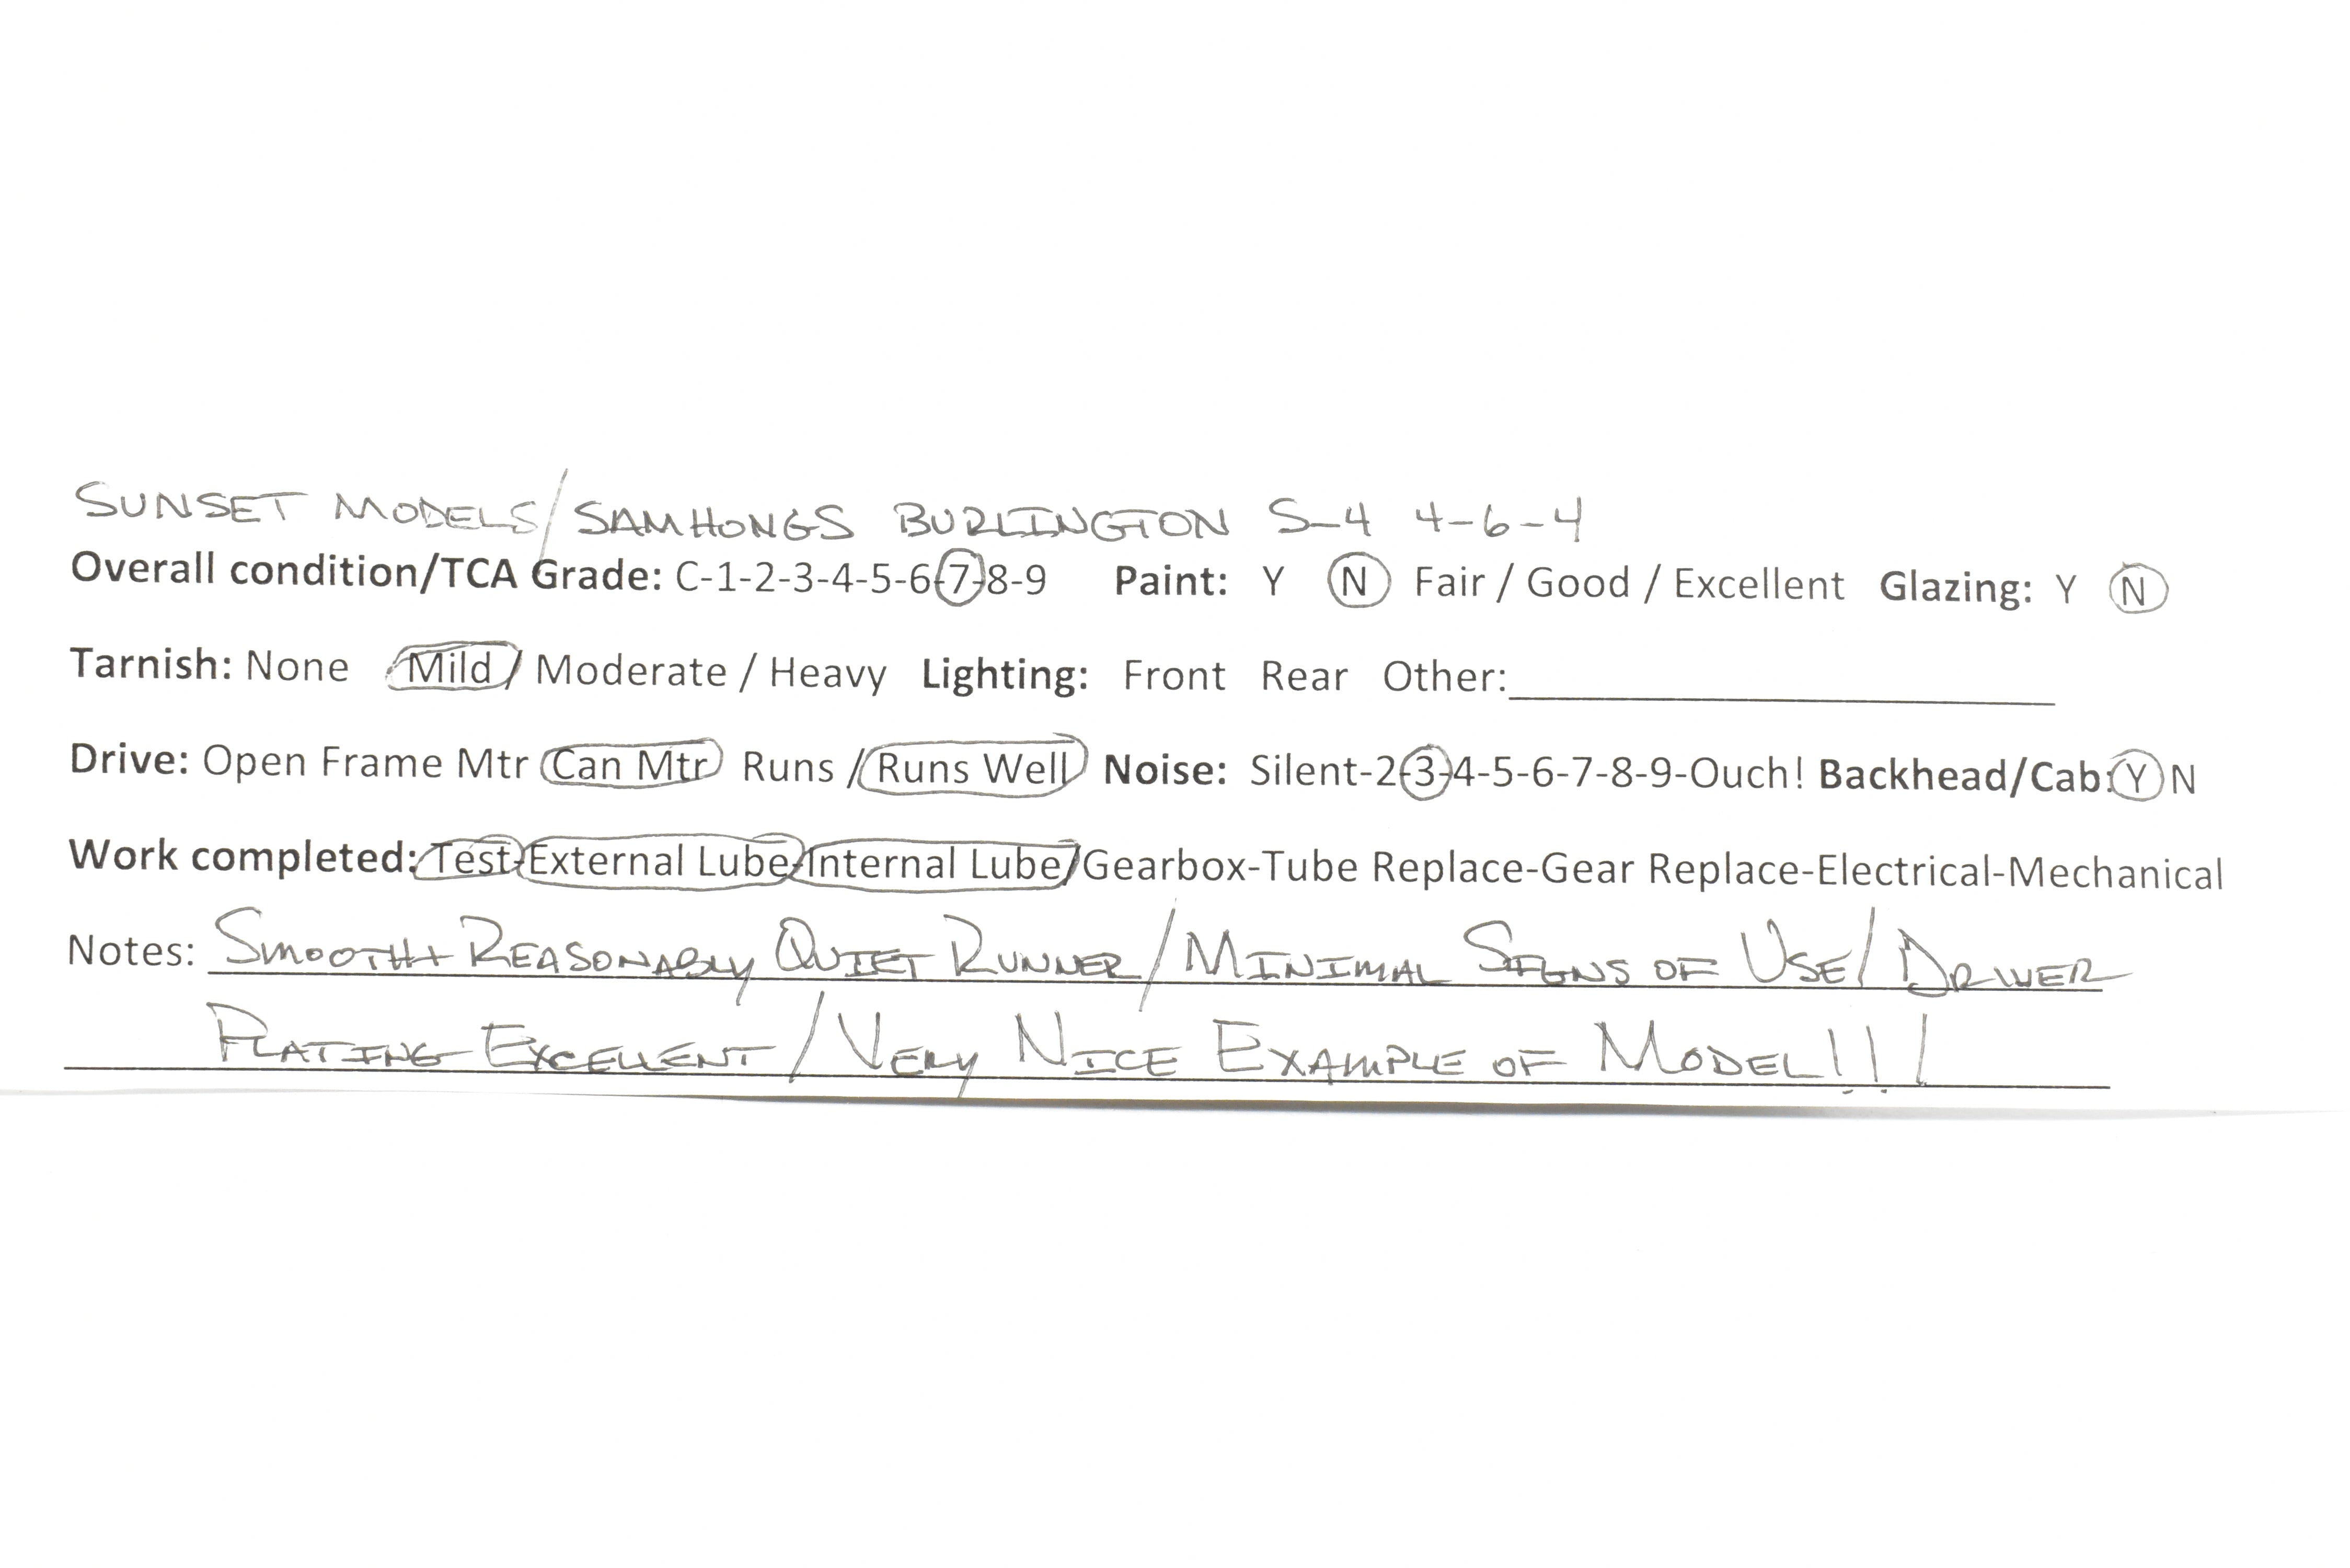 SUNSET MODELS/SAMHONGS BURLINGTON S-4 4-6-4
Overall condition/TCA Grade: C-1-2-3-4-5-6-7-8-9 Paint: Y N Fair / Good / Excellent Glazing: Y N
Tarnish: None Mild / Moderate / Heavy Lighting: Front Rear Other:
Drive: Open Frame Mtr Can Mtr Runs / Runs Well Noise: Silent-2-3-4-5-6-7-8-9-Ouch! Backhead/Cab: Y N
Work completed: Test-External Lube-Internal Lube/Gearbox-Tube Replace-Gear Replace-Electrical-Mechanical
Notes: SMOOTH + REASONABLY QUIET RUNNER/MINIMAL SIGNS OF USE/DRIVER
PLATING EXCELLENT/VERY NICE EXAMPLE OF MODEL!!!